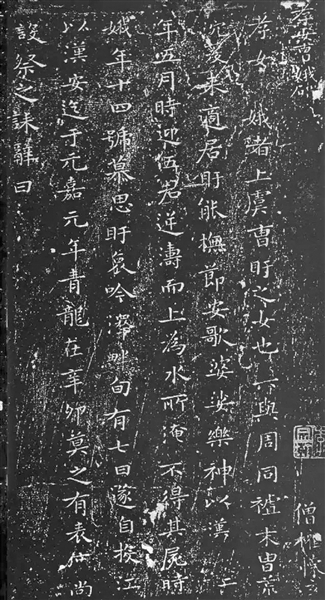 孝女曹娥碑
孝女曹娥者上虞曹盱之女也其先與周同祖末胄荒
沉爰来適居盱能撫節安歌婆娑樂神以漢安二
年五月時迎伍君逆濤而上為水所淹不得其屍時
娥年十四號慕思盱哀吟澤畔旬有七日遂自投江
死經五日抱父屍出以漢安迄于元嘉元年青龍在辛卯莫之有表度尚
設祭之誄辭曰
僧權